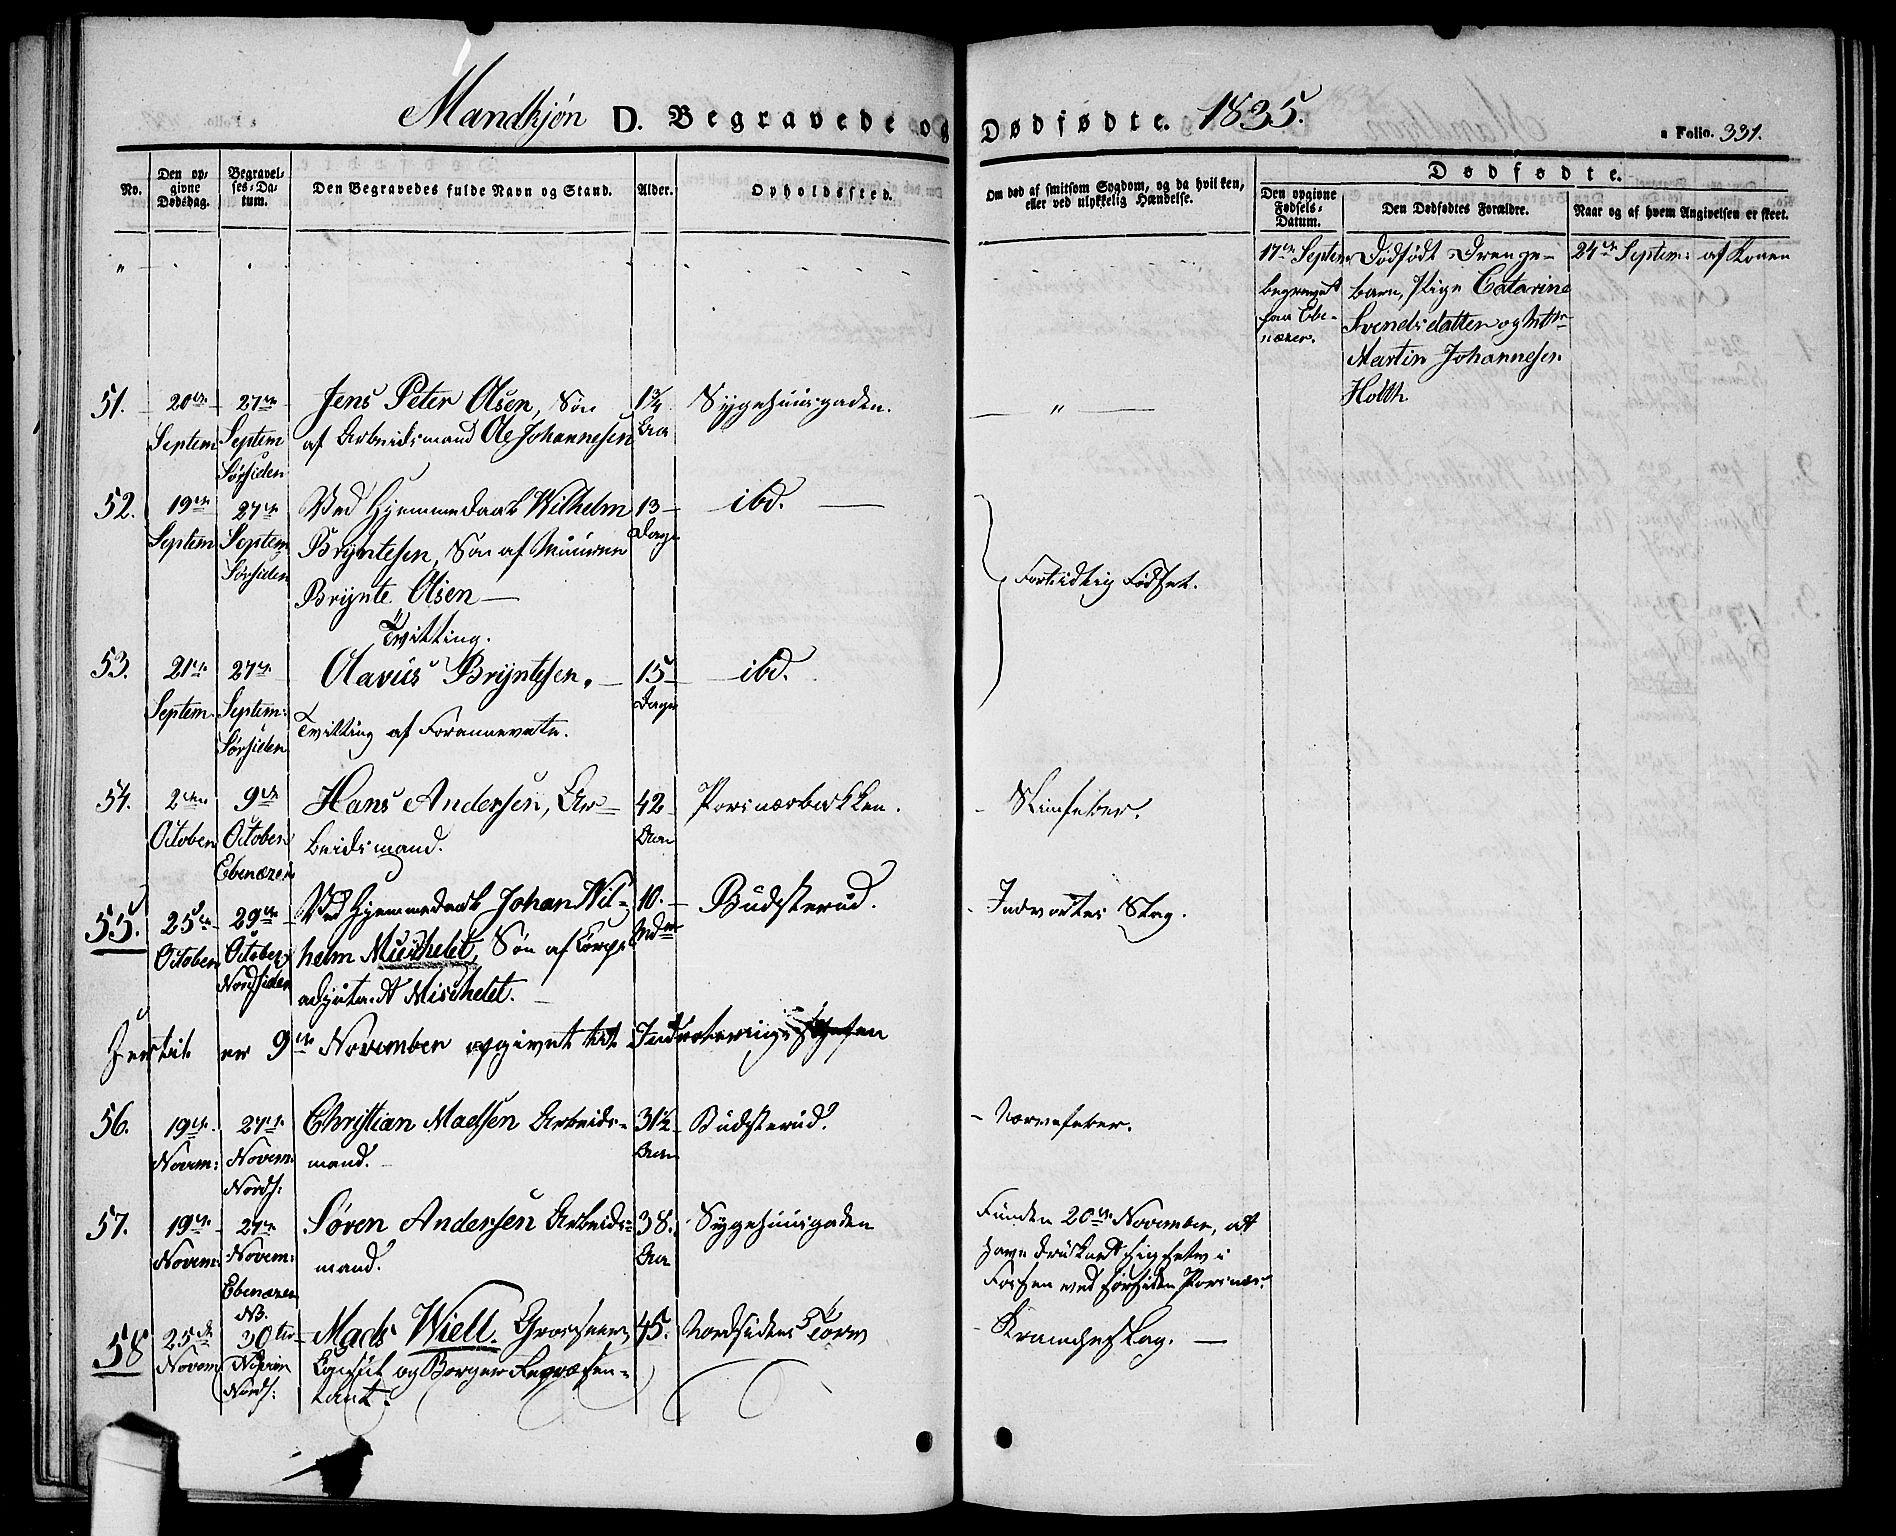 Mandkjøn D. Begravede og Dødfødte. 1835.
a Folio. 331.
No.
Den opgivne Dødsdag.
Begravelses-Datum.
Den Begravedes fulde Navn og Stand.
Alder.
Opholdssted.
Om død af smitsom Sygdom, og da hvilken,
eller ved ulykkelig Hændelse.
Dødfødte.
Den opgivne Fødsels-Datum.
Den Dødfødtes Forældre.
Naar og af hvem Angivelsen er skeet.
17de Septem
begravet
paa Ebe-
næzer.
Dødfødt Drenge-
barn, Pige Catarine
Svendsdatter og
Martin Johannesen
Holth
24de Septem: af Konen
51. 20de Septem 27de Septem Sørsiden
Jens Peter Olsen, Søn
af Arbeidsmand Ole Johannesen
1 3/4 Aar
Sygehuusgaden.
52. 19de Septem 27de Septem Sørsiden
Ved Hjemmedaab Wilhelm
Bryntesen, Søn af Muurer
Brynte Olsen
Tvilling.
13 Dage
ibd.
Fortidlig Fødsel.
53. 21de Septem. 27de Septem: Sørsiden
Olavus Bryntesen.
Tvilling af Forannævnte.
15 Dage
ibd.
54. 2den October 9de October Ebenæzer
Hans Andersen, Ar-
beidsmand.
42 Aar
Porsnærbakken.
Slimfeber.
55. 25de October 29de October Nordsiden
Ved Hjemmedaab Johan Wil-
helm Mischelet, Søn af Corps-
adjutant Mischelet.
10. Mdr
Budsterud.
Indvortes Slag.
Hertil er 9de November opgivet til Inderoterings Chefen
56. 19de Novem: 27de Novem: Nords:
Christian Madsen Arbeids-
mand.
31 1/2 Aar
Budsterud.
Nervefeber.
57. 19de Novem: 27de Novem: Ebenæzer
Søren Andersen Arbeids-
mand.
38. Aar
Sygehuusgaden
Funden 20de November, at
have druknet sig selv i
Fossen ved Sørsiden Porsnæs.
58 25de Novem NB. 30te Novem Nords:
Mads Wiell. Grosserer,
Consul og Borger Repræsen-
tant.
45.
Nordsidens Torv
Krampeslag.